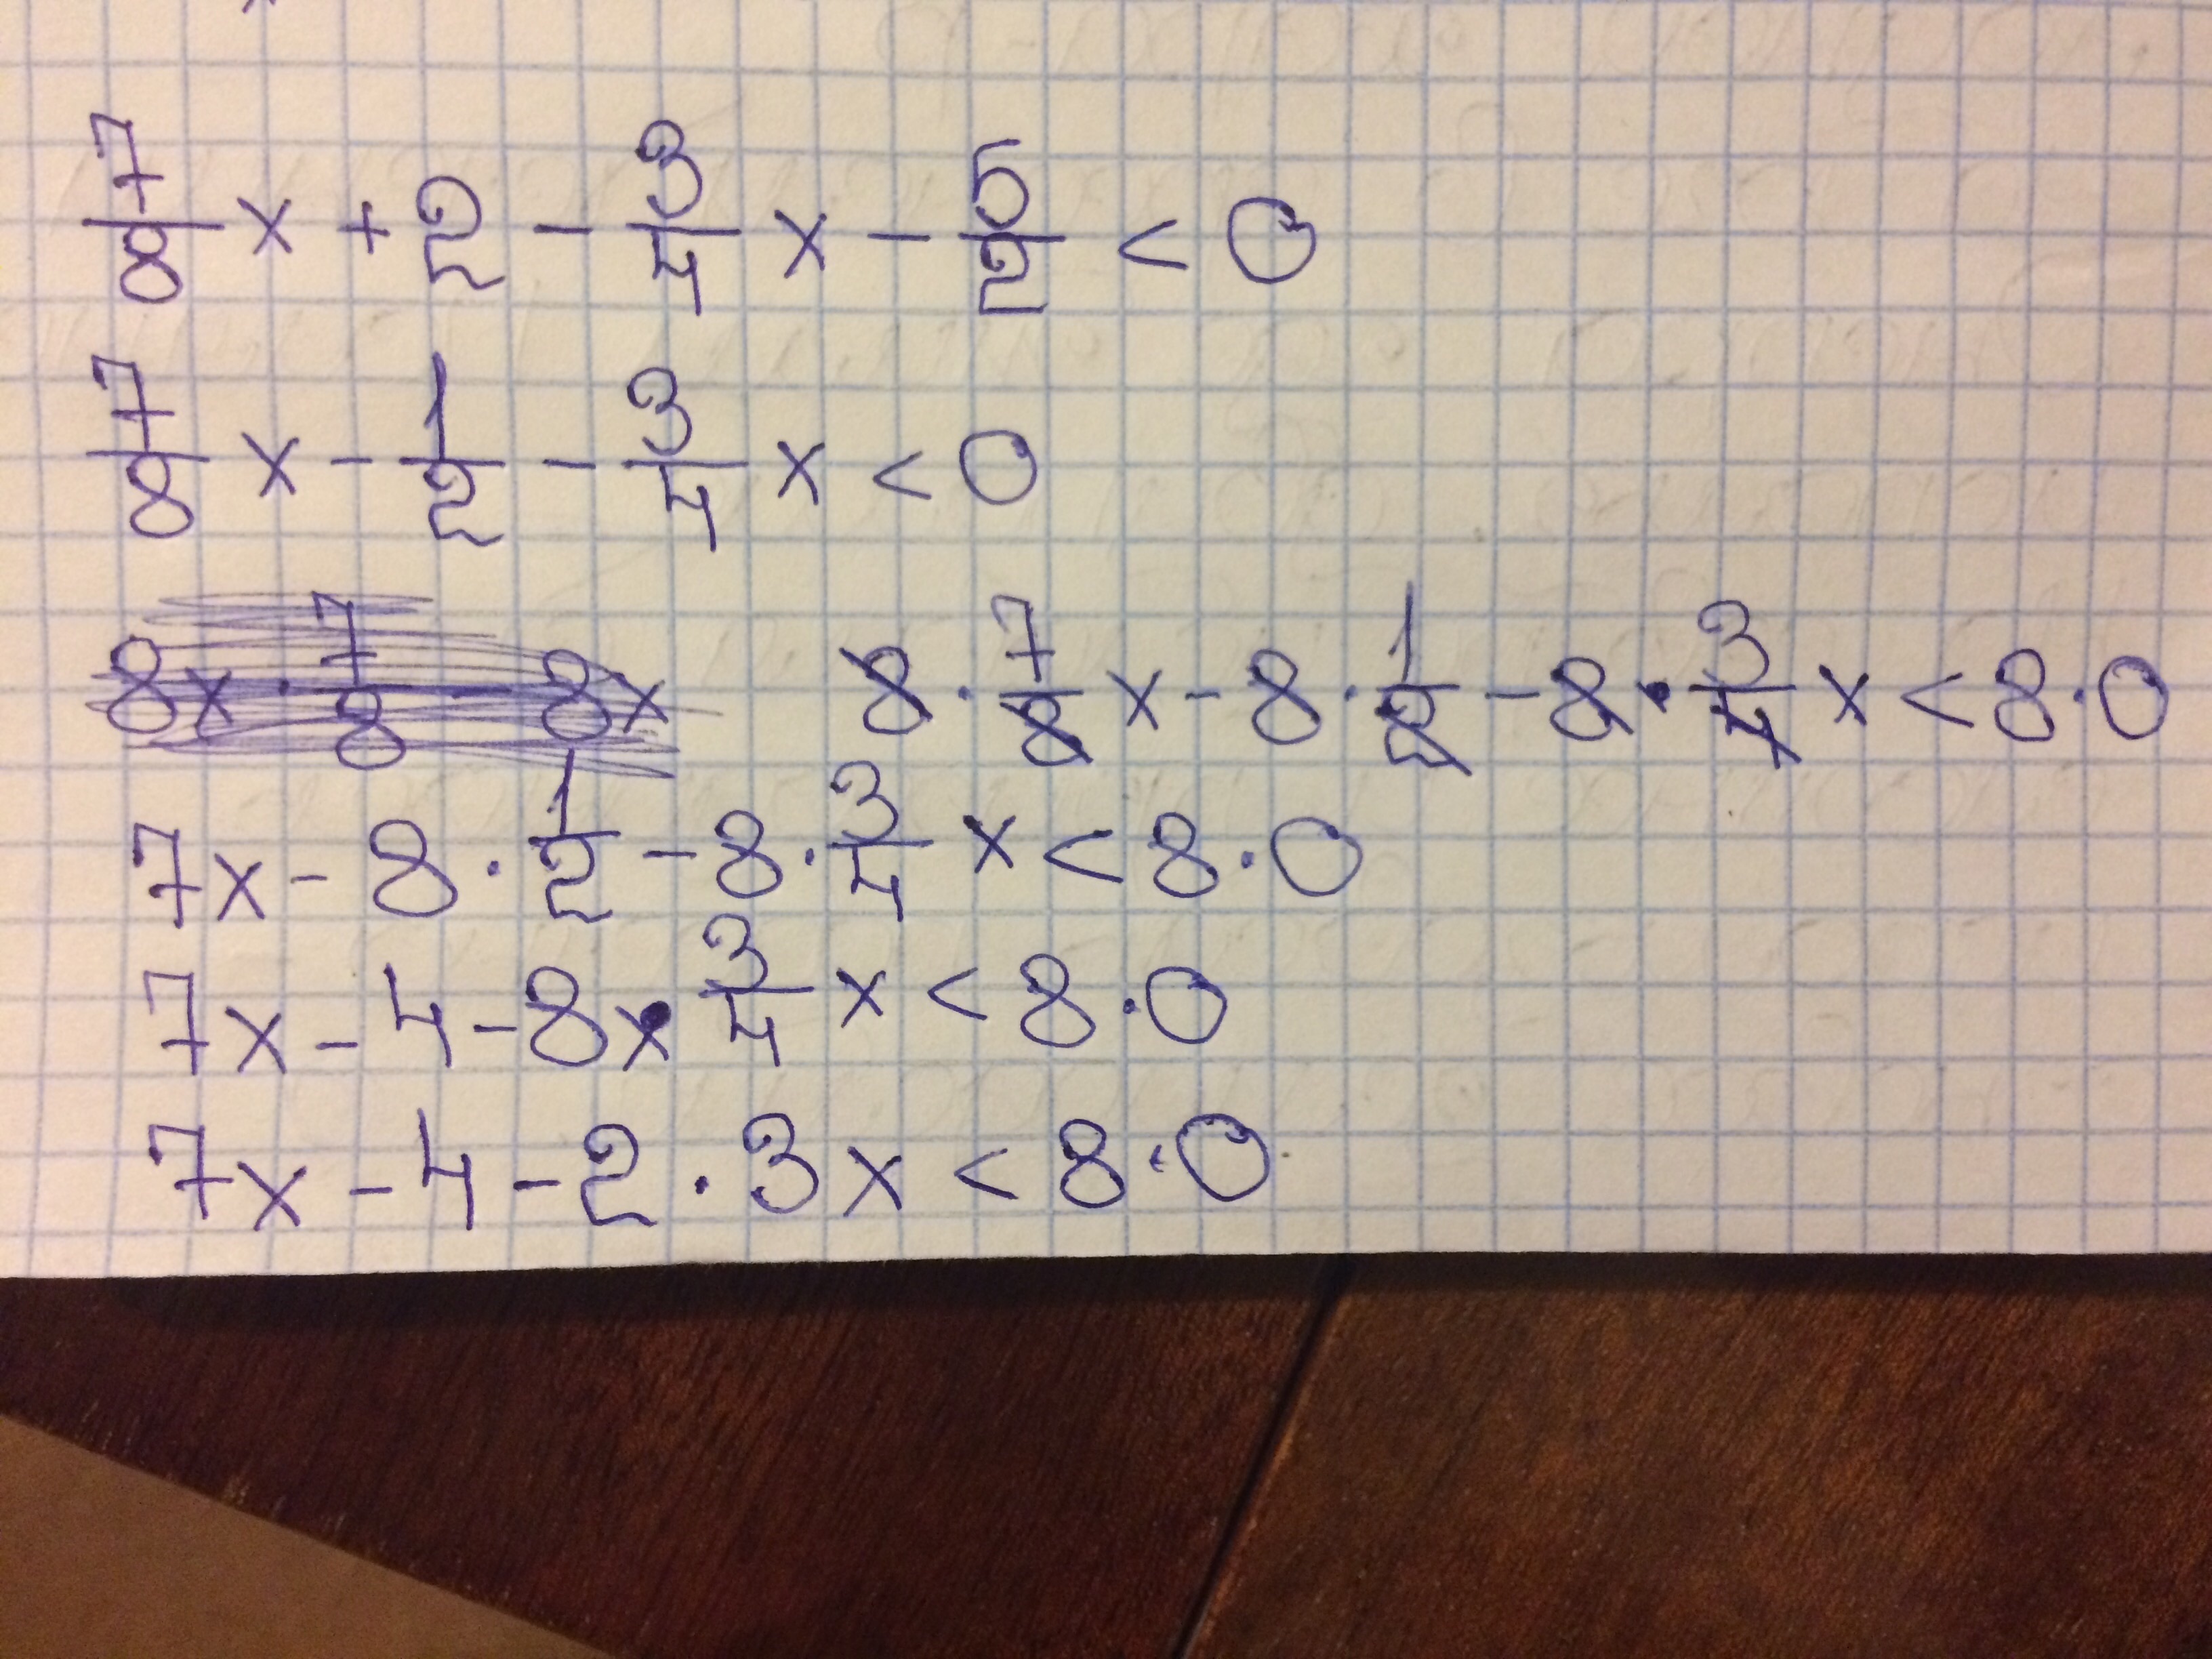 7/8 x + 2 - 3/4 x - 5/2 < 0
7/8 x - 1/2 - 3/4 x < 0
8x · 7/8 - 8x 8 · 7/8 x - 8 · 1/2 - 8 · 3/4 x < 8 · 0
7x - 8 · 1/2 - 8 · 3/4 x < 8 · 0
7x - 4 - 8 · 3/4 x < 8 · 0
7x - 4 - 2 · 3x < 8 · 0